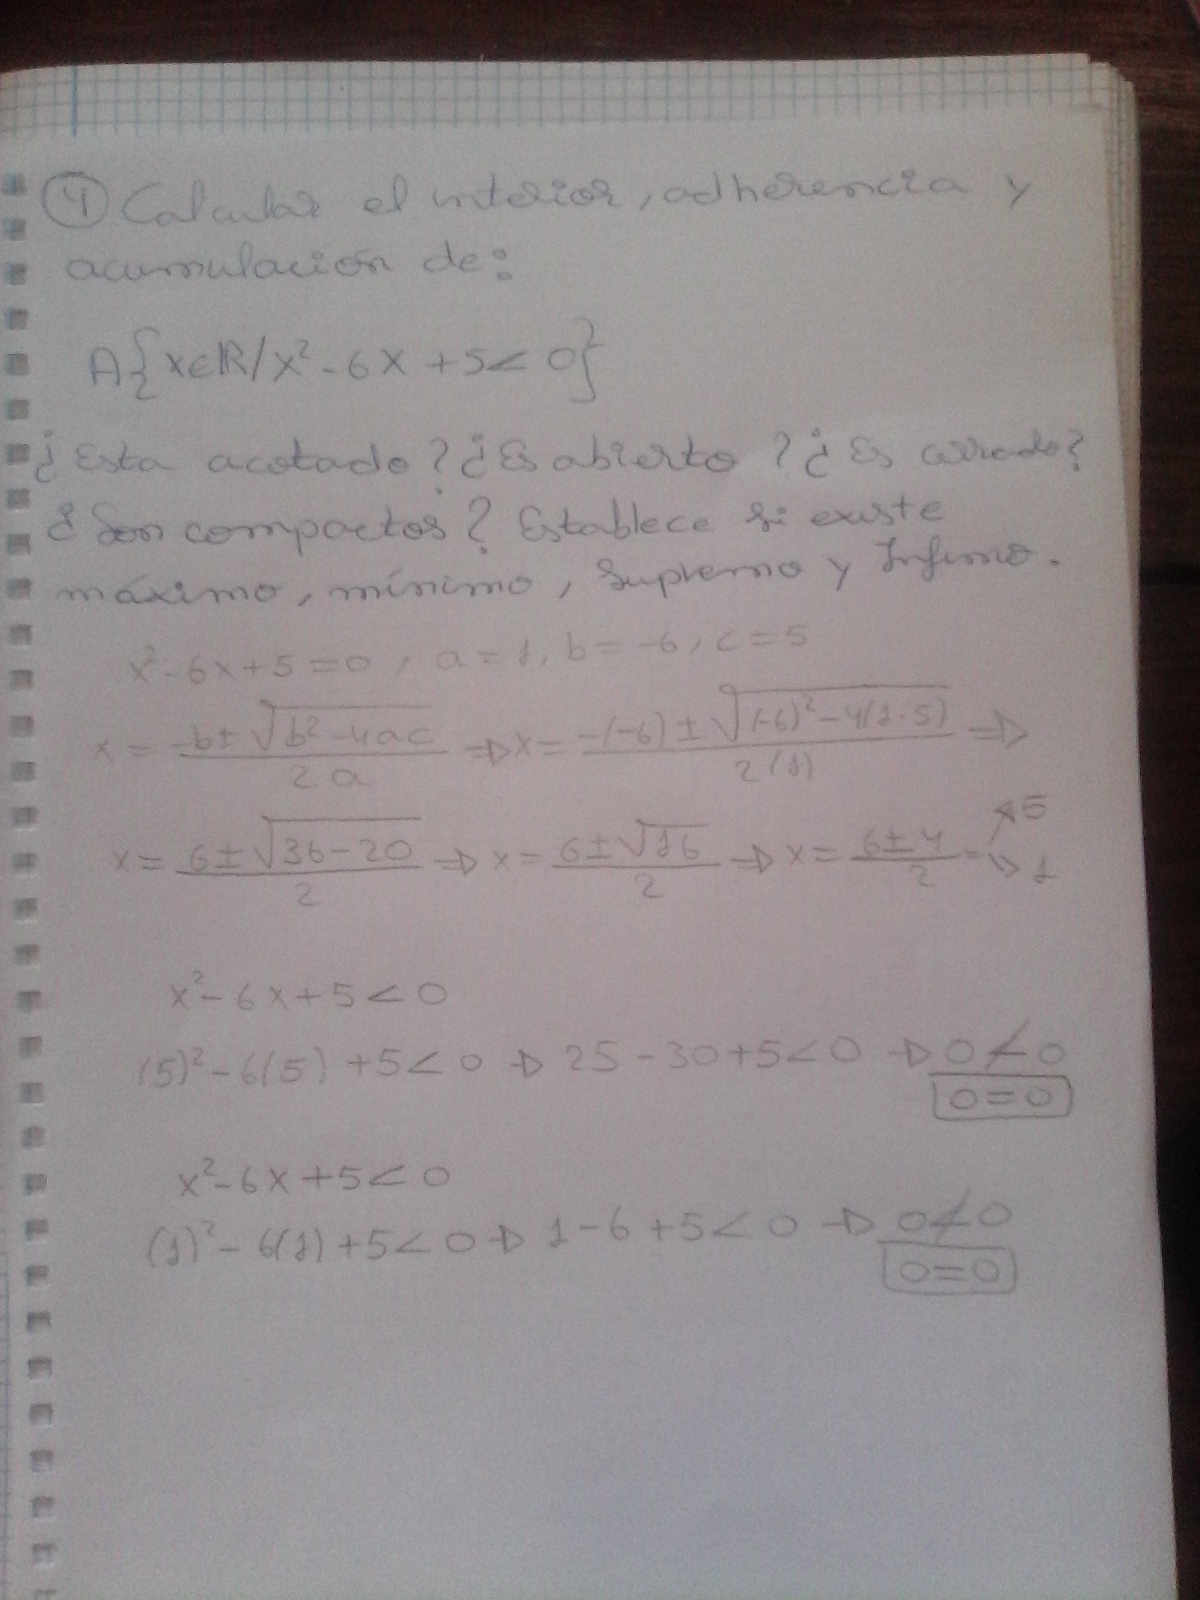 ④ Calcular el interior, adherencia y
acumulación de:
A{x∈R/x²-6x+5<0}
¿Esta acotado? ¿Es abierto? ¿Es cerrado?
¿Son compactos? Establece si existe
máximo, mínimo, Supremo y Infimo.
x²-6x+5=0, a=1, b=-6, c=5
x = (-b±√(b²-4ac))/(2a) ⇒ x = (-(-6)±√((-6)²-4(1·5)))/(2(1)) ⇒
x = (6±√(36-20))/2 ⇒ x = (6±√16)/2 ⇒ x = (6±4)/2 = ↗5 ↘1
x²-6x+5<0
(5)²-6(5)+5<0 ⇒ 25-30+5<0 ⇒ 0≮0
0=0
x²-6x+5<0
(1)²-6(1)+5<0 ⇒ 1-6+5<0 ⇒ 0≮0
0=0